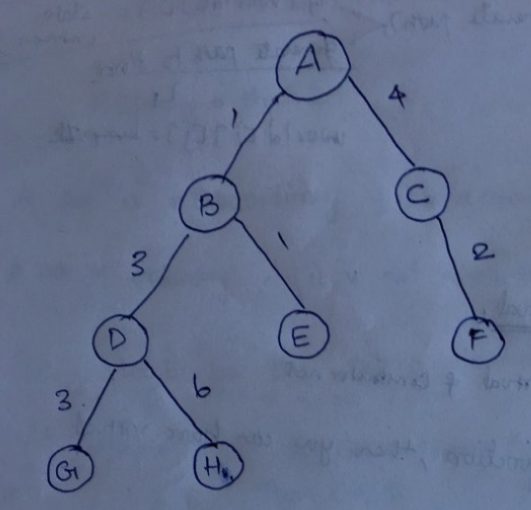 A
1 4
B C
3 1 2
D E F
3 6
G H